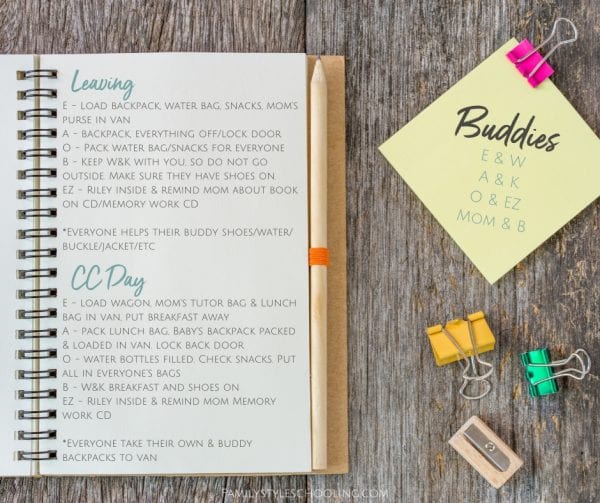 Leaving
E - LOAD BACKPACK, WATER BAG, SNACKS, MOM'S
PURSE IN VAN
A - BACKPACK, EVERYTHING OFF/LOCK DOOR
O - PACK WATER BAG/SNACKS FOR EVERYONE
B - KEEP W&K WITH YOU, SO DO NOT GO
OUTSIDE. MAKE SURE THEY HAVE SHOES ON.
EZ - RILEY INSIDE & REMIND MOM ABOUT BOOK
ON CD/MEMORY WORK CD
*EVERYONE HELPS THEIR BUDDY SHOES/WATER/
BUCKLE/JACKET/ETC
CC Day
E - LOAD WAGON, MOM'S TUTOR BAG & LUNCH
BAG IN VAN, PUT BREAKFAST AWAY
A - PACK LUNCH BAG, BABY'S BACKPACK PACKED
& LOADED IN VAN, LOCK BACK DOOR
O - WATER BOTTLES FILLED, CHECK SNACKS, PUT
ALL IN EVERYONE'S BAGS
B - W&K BREAKFAST AND SHOES ON
EZ - RILEY INSIDE & REMIND MOM MEMORY
WORK CD
*EVERYONE TAKE THEIR OWN & BUDDY
BACKPACKS TO VAN
Buddies
E & W
A & K
O & EZ
MOM & B
FAMILYSTYLESCHOOLING.COM